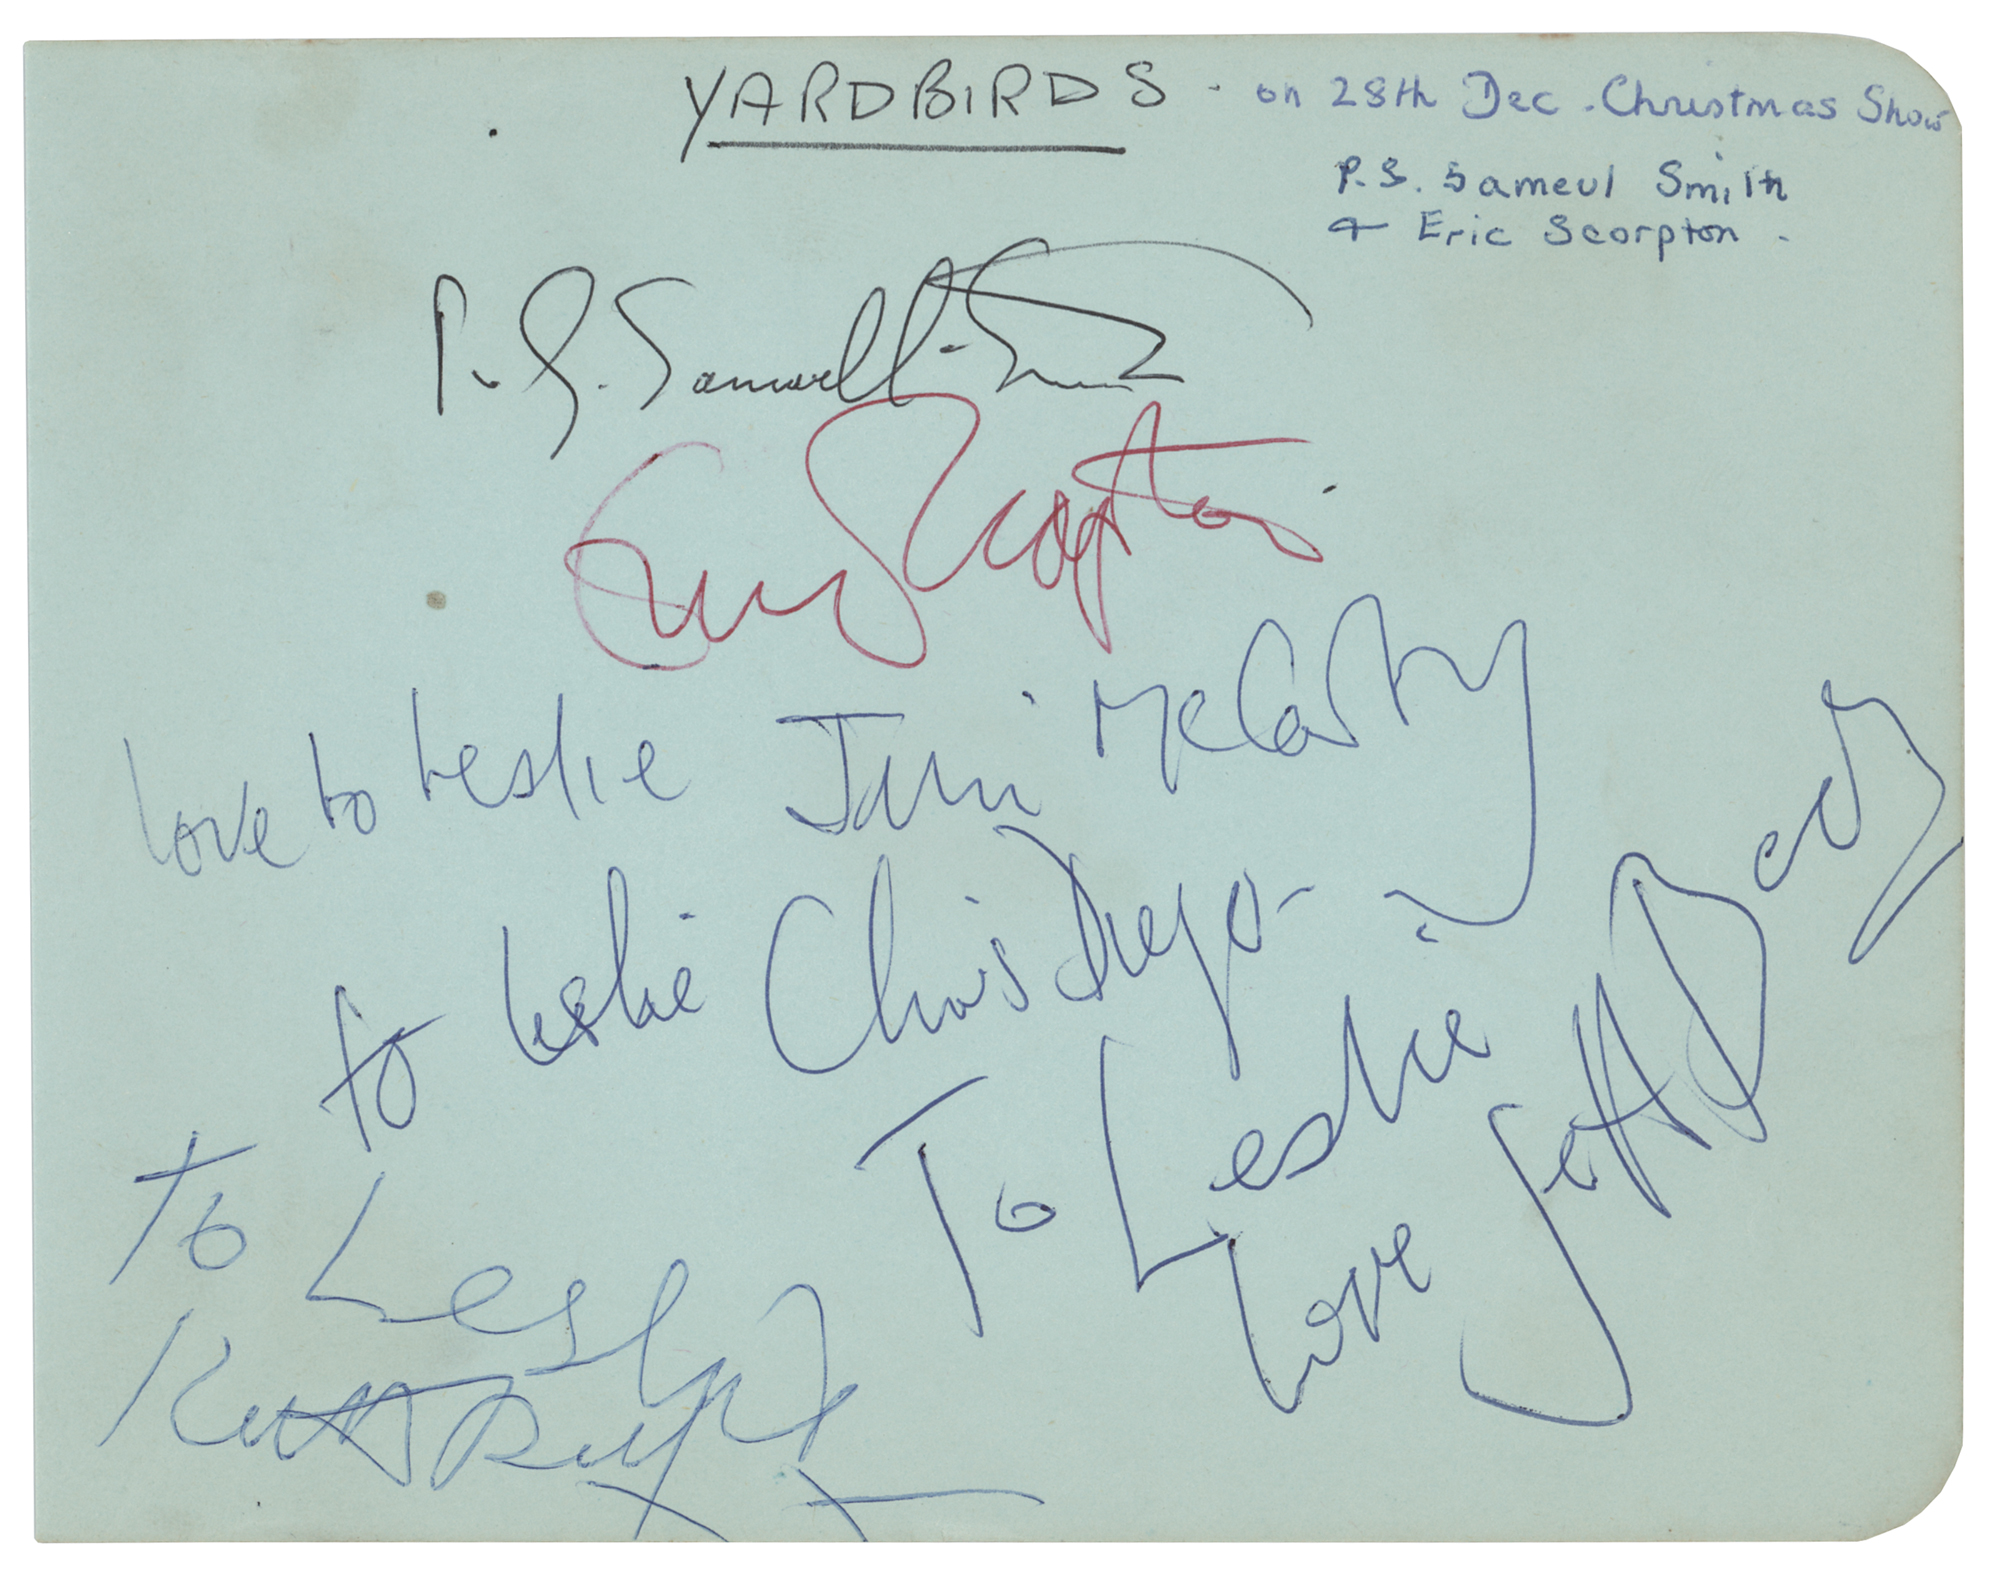 YARDBIRDS - on 28th Dec. Christmas Show
P.S. Sameul Smith
+ Eric Scorpton.
P. S. Samwell-Smith
Eric Scorpton.
Love to Leslie Jim McCarty
to Leslie Chris Dreja
To Leslie
love Jeff Beck
To Leslie
Keith Relf